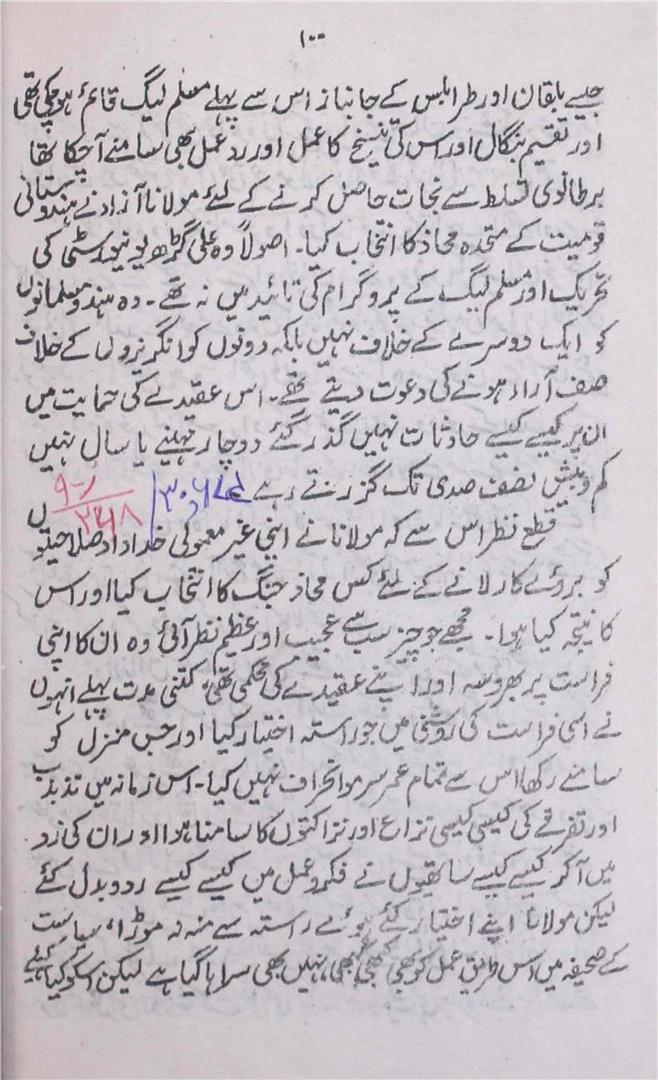 ۱۰۰
جیسے بلقان اور طرابلس کے جانباز اس سے پہلے مسلم لیگ قائم ہو چکی تھی
اور تقسیم بنگال اور اس کی تنسیخ کا عمل اور ردعمل بھی سامنے آچکا تھا
برطانوی تسلط سے نجات حاصل کرنے کے لئے مولانا آزاد نے ہندوستانی
قومیت کے متحدہ محاذ کا انتخاب کیا۔ اصولاً وہ علی گڑھ یونیورسٹی کی
تحریک اور مسلم لیگ کے پروگرام کی تائید میں نہ تھے۔ وہ ہندو مسلمانوں
کو ایک دوسرے کے خلاف نہیں بلکہ دونوں کو انگریزوں کے خلاف
صف آراء ہونے کی دعوت دیتے تھے۔ اس عقیدے کی حمایت میں
ان پر کیسے کیسے حادثات نہیں گذر گئے دو چار مہینے یا سال نہیں
کم و بیش نصف صدی تک گزرتے رہے
قطع نظر اس سے کہ مولانا نے اپنی غیر معمولی خداداد صلاحیتوں
کو بروئے کار لانے کے لئے کس محاذ جنگ کا انتخاب کیا اور اس
کا نتیجہ کیا ہوا۔ مجھے جو چیز سب سے عجیب اور عظیم نظر آئی وہ ان کا اپنی
فراست پر بھروسہ اور اپنے عقیدے کی محکمی تھی، کتنی مدت پہلے انہوں
نے اسی فراست کی روشنی میں جو راستہ اختیار کیا اور جس منزل کو
سامنے رکھا اس سے تمام عمر سرمو انحراف نہیں کیا۔ اس زمانہ میں تذبذب
اور تفرقے کی کیسی کیسی نزاع اور نزاکتوں کا سامنا ہوا اور ان کی زد
میں آکر کیسے کیسے ساتھیوں نے فکر و عمل میں کیسے کیسے ردوبدل کئے
لیکن مولانا اپنے اختیار کئے ہوئے راستہ سے منہ نہ موڑا، سیاست
کے صحیفہ میں اس طریق عمل کو بھی کبھی کبھی نہیں بھی سراہا گیا ہے لیکن اسکو کیا کہئے